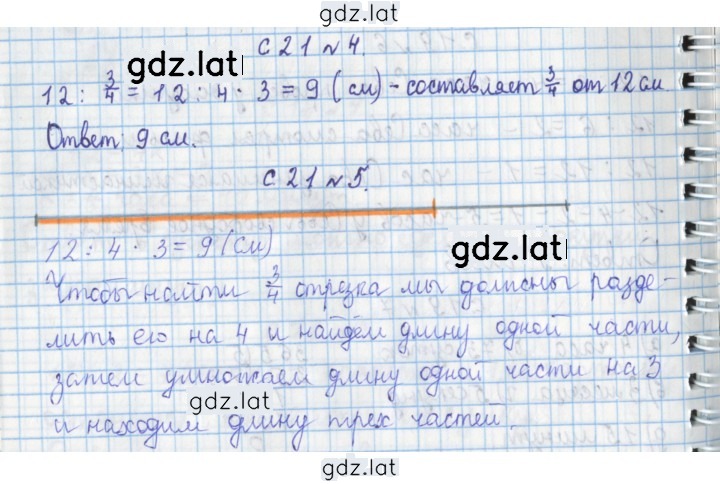 gdz.lat
с 21 № 4.
gdz.lat gdz.lat
12 : 3/4 = 12 : 4 · 3 = 9 (см) - составляет 3/4 от 12 см.
Ответ: 9 см.
с 21 № 5.
gdz.lat
12 : 4 · 3 = 9 (см)
gdz.lat gdz.lat
Чтобы найти 3/4 отрезка мы должны разде-
лить его на 4 и найдём длину одной части,
затем умножаем длину одной части на 3
gdz.lat
и находим длину трех частей.
gdz.lat